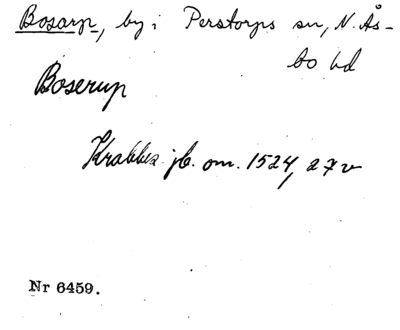 Bosarp, by i Perstorps sn, N. Ås-
bo hd
Boserup
Krabbes jb. om. 1524, 27 v
Nr 6459.